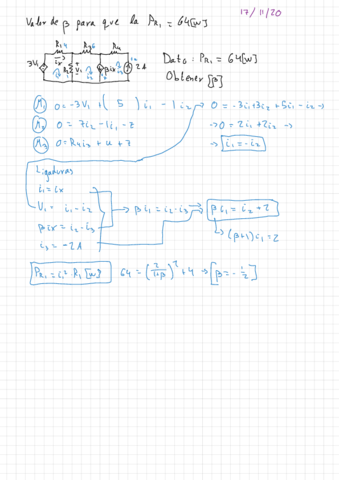 17/11/20
Valor de β para que la P_R1 = 64[W]
R1 4 R3 6 R4
3V1 ix R2 V1 βix 2A
Dato: P_R1 = 64[W]
Obtener [β]
M1 0 = -3V1 + ( 5 ) i1 - 1 i2 → 0 = -3i1 + 3i2 + 5i1 - i2 →
M2 0 = 7i2 - 1i1 - z → 0 = 2i1 + 2i2 →
M3 0 = R4i3 + u + z → i1 = -i2
Ligaduras
i1 = ix
V1 = i1 - i2 → β i1 = i2 - i3 → β i1 = i2 + 2
βix = i2 - i3 (β+1) i1 = 2
i3 = -2A
P_R1 = i1² · R1 [W] 64 = (2/(1+β))² · 4 → [β = -1/2]